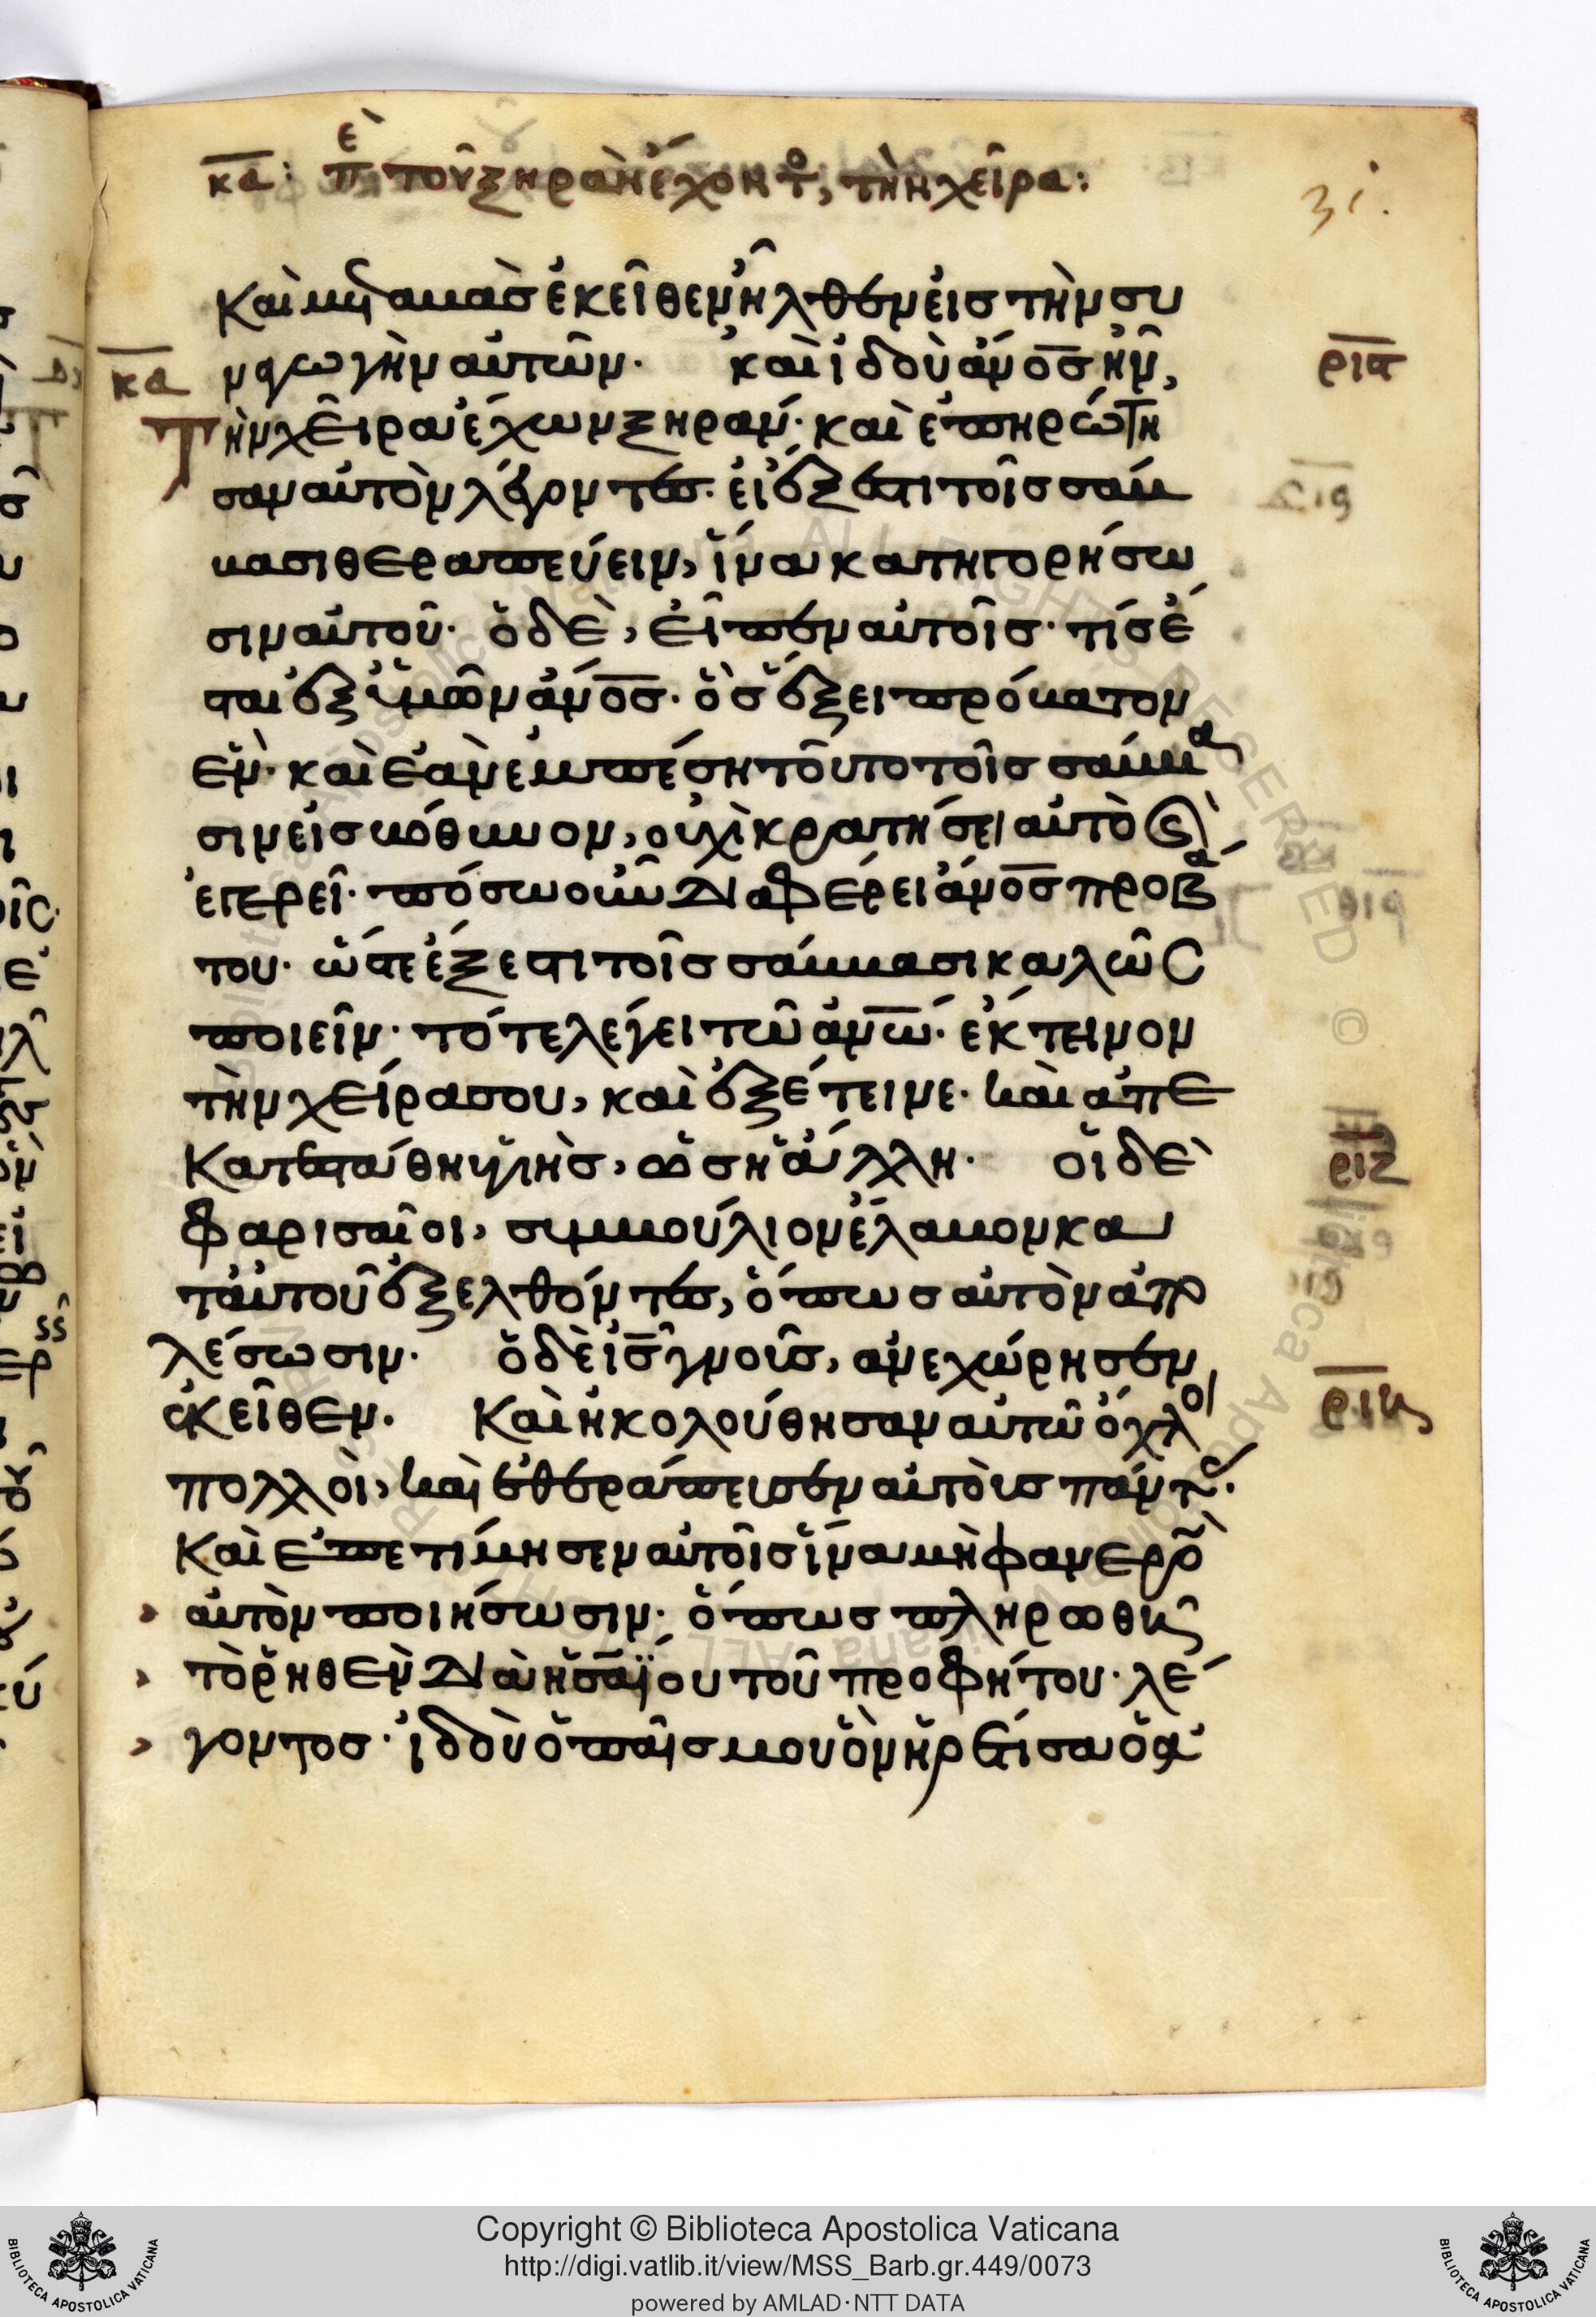 κα: π ὲ τοῦ ξηρὰν ἔχοντ ο, τὴν χεῖρα:
31.
Καὶ μεταβὰς ἐκεῖθεν ἦλθεν εἰς τὴν συ
ναγωγὴν αὐτῶν. καὶ ἰδοὺ ἄνος ἦν, ριϛ
κα
τὴν χεῖρα ἔχων ξηράν. καὶ ἐπηρώτη
σαν αὐτὸν λέγοντες. εἰ ἔξεστι τοῖς σάβ
βασι θεραπεύειν, ἵνα κατηγορήσω
σιν αὐτοῦ. ὁ δὲ, εἶπεν αὐτοῖς. τίς ἔ
σται ἐξ ὑμῶν ἄνος. ὃς ἕξει πρόβατον
ἕν. καὶ ἐὰν ἐμπέση τοῦτο τοῖς σάββα
σιν εἰς βόθυνον, οὐχὶ κρατήσει αὐτὸ καὶ
ἐγερεῖ. πόσω οὖν διαφέρει ἄνος προβά
του. ὥστε ἔξεστι τοῖς σάββασι καλῶς
ποιεῖν. τότε λέγει τῶ ἀνω. ἔκτεινον
τὴν χεῖρα σου, καὶ ἐξέτεινε. καὶ ἀπε
κατεστάθη ὑγιὴς, ὡς ἡ ἄλλη. οἱ δὲ ριζ
φαρισαῖοι, συμβούλιον ἔλαβον κα
τ αὐτοῦ ἐξελθόντες, ὅπως αὐτὸν ἀπο
λέσωσιν. ὁ δὲ ις γνοὺς, ἀνεχώρησεν
ἐκεῖθεν. Καὶ ἠκολούθησαν αὐτῶ ὄχλοι ριη
πολλοὶ, καὶ ἐθεράπευσεν αὐτοὺς πάντας.
Καὶ ἐπετίμησεν αὐτοῖς ἵνα μὴ φανερὸ
αὐτὸν ποιήσωσιν. ὅπως πληρωθῆ
τὸ ῥηθὲν διὰ ἠσαΐου τοῦ προφήτου. λέ
γοντος. ἰδοὺ ὁ παῖς μου ὃν ἡρέτισα ὁ ἀ
Copyright © Biblioteca Apostolica Vaticana
http://digi.vatlib.it/view/MSS_Barb.gr.449/0073
powered by AMLAD·NTT DATA
BIBLIOTECA APOSTOLICA VATICANA
BIBLIOTECA APOSTOLICA VATICANA